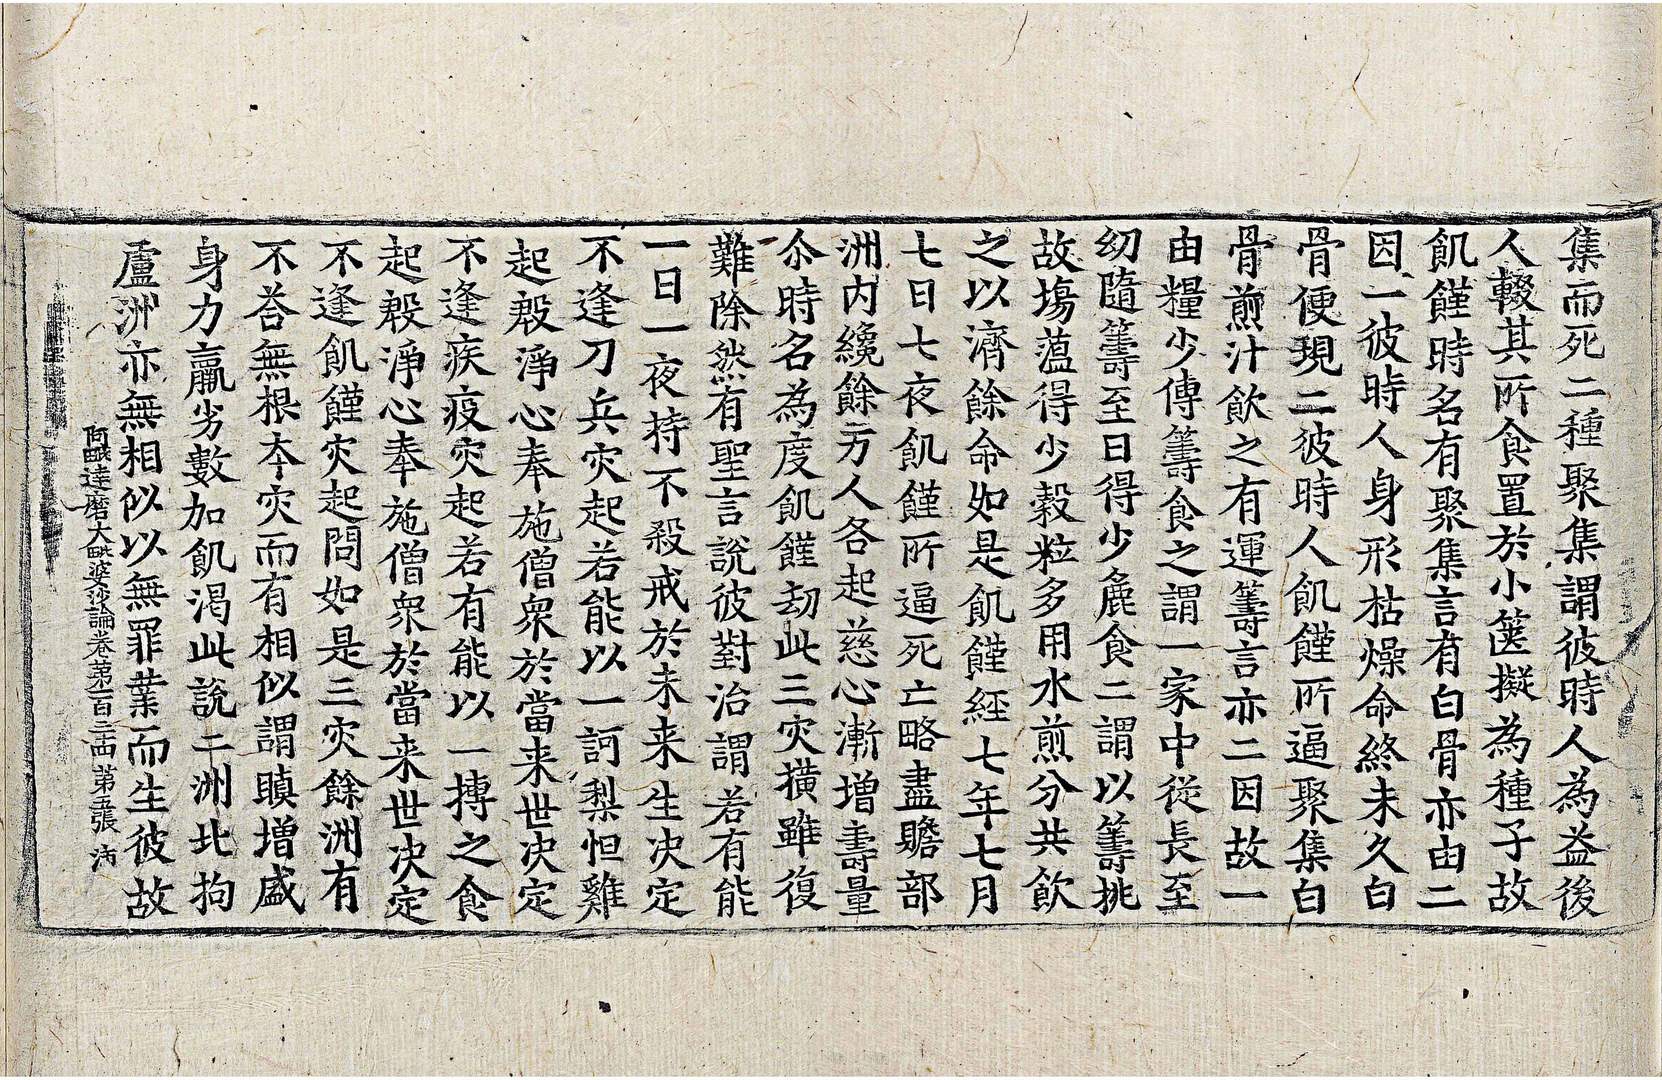 集而死二種聚集謂彼時人為益後
人輟其所食置於小篋擬為種子故
飢饉時名有聚集言有白骨亦由二
因一彼時人身形枯燥命終未久白
骨便現二彼時人飢饉所逼聚集白
骨煎汁飲之有運籌言亦二因故一
由糧少傳籌食之謂一家中從長至
幼隨籌至日得少麁食二謂以籌挑
故塲薀得少穀粒多用水煎分共飲
之以濟餘命如是飢饉經七年七月
七日七夜飢饉所逼死亡略盡贍部
洲內纔餘万人各起慈心漸增壽量
尒時名為度飢饉劫此三灾橫雖復
難除然有聖言說彼對治謂若有能
一日一夜持不殺戒於未来生决定
不逢刀兵灾起若能以一訶梨怛雞
起殷淨心奉施僧衆於當来世决定
不逢疾疫灾起若有能以一摶之食
起殷淨心奉施僧衆於當来世决定
不逢飢饉灾起問如是三灾餘洲有
不荅無根夲灾而有相似謂瞋增盛
身力羸劣數加飢渴此說二洲北拘
盧洲亦無相似以無罪業而生彼故
阿毗達磨大毗婆沙論卷第一百三十四 第五張 沛